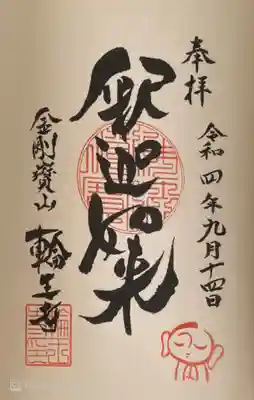 奉拝
令和四年九月十四日
釈迦如来
金剛寶山
輪王寺